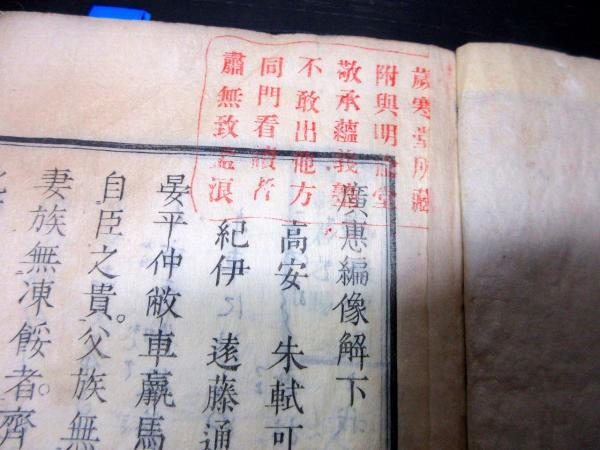 歲寒堂所藏
附與明堂
敬承蘊義塾
不敢出他方
同門看讀者
肅無致孟浪
廣惠編像解下
高安 朱軾可
紀伊 遠藤通
晏平仲敝車羸馬
自臣之貴。父族無
妻族無凍餒者。齊